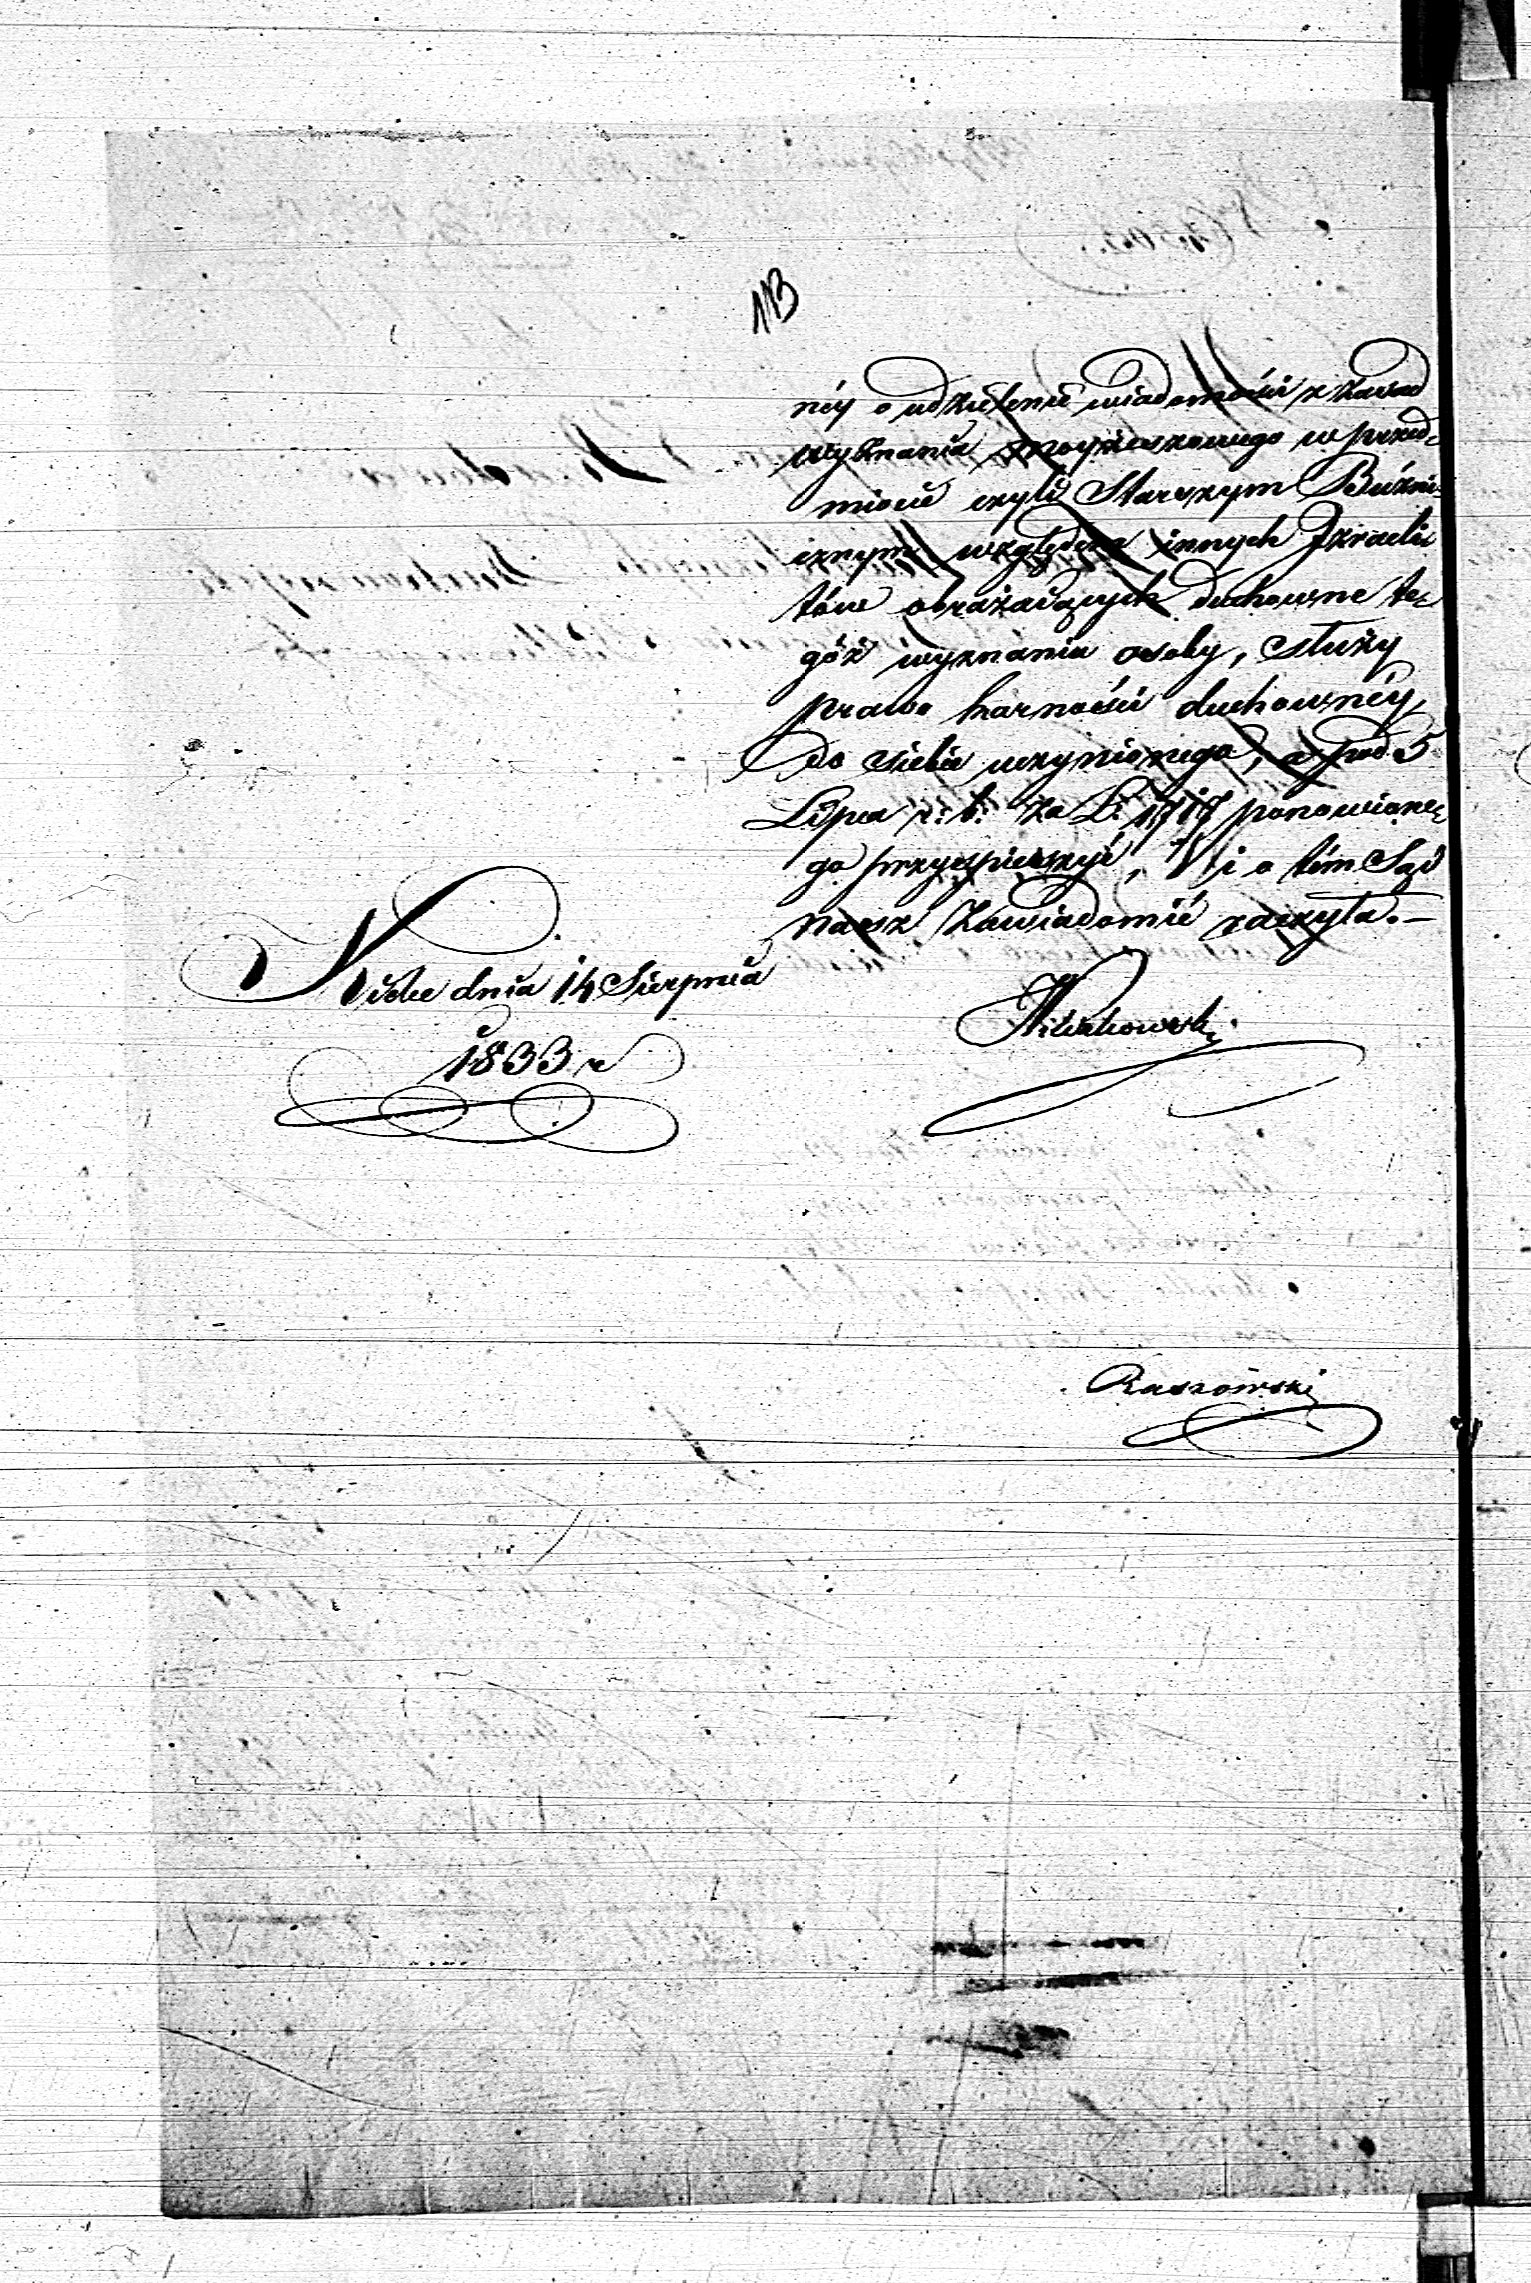 113
néy o udzielenie wiadomości z zasad
wyznania moyżeszowego w przed-
miocie czyli Starszym Bużni-
cznym względem innych Izraeli-
tów obrażaiących duchowne te-
góż wyznania osoby, służy
prawo karności duchownéy,
do siebie uczynionego, a pod 5
Lipca r. b. za L. 1717 ponowione-
go przyspieszyć, i o tém Sąd
nasz zawiadomić raczyła.—
dnia 14 Sierpnia
1833 r
Raszowski